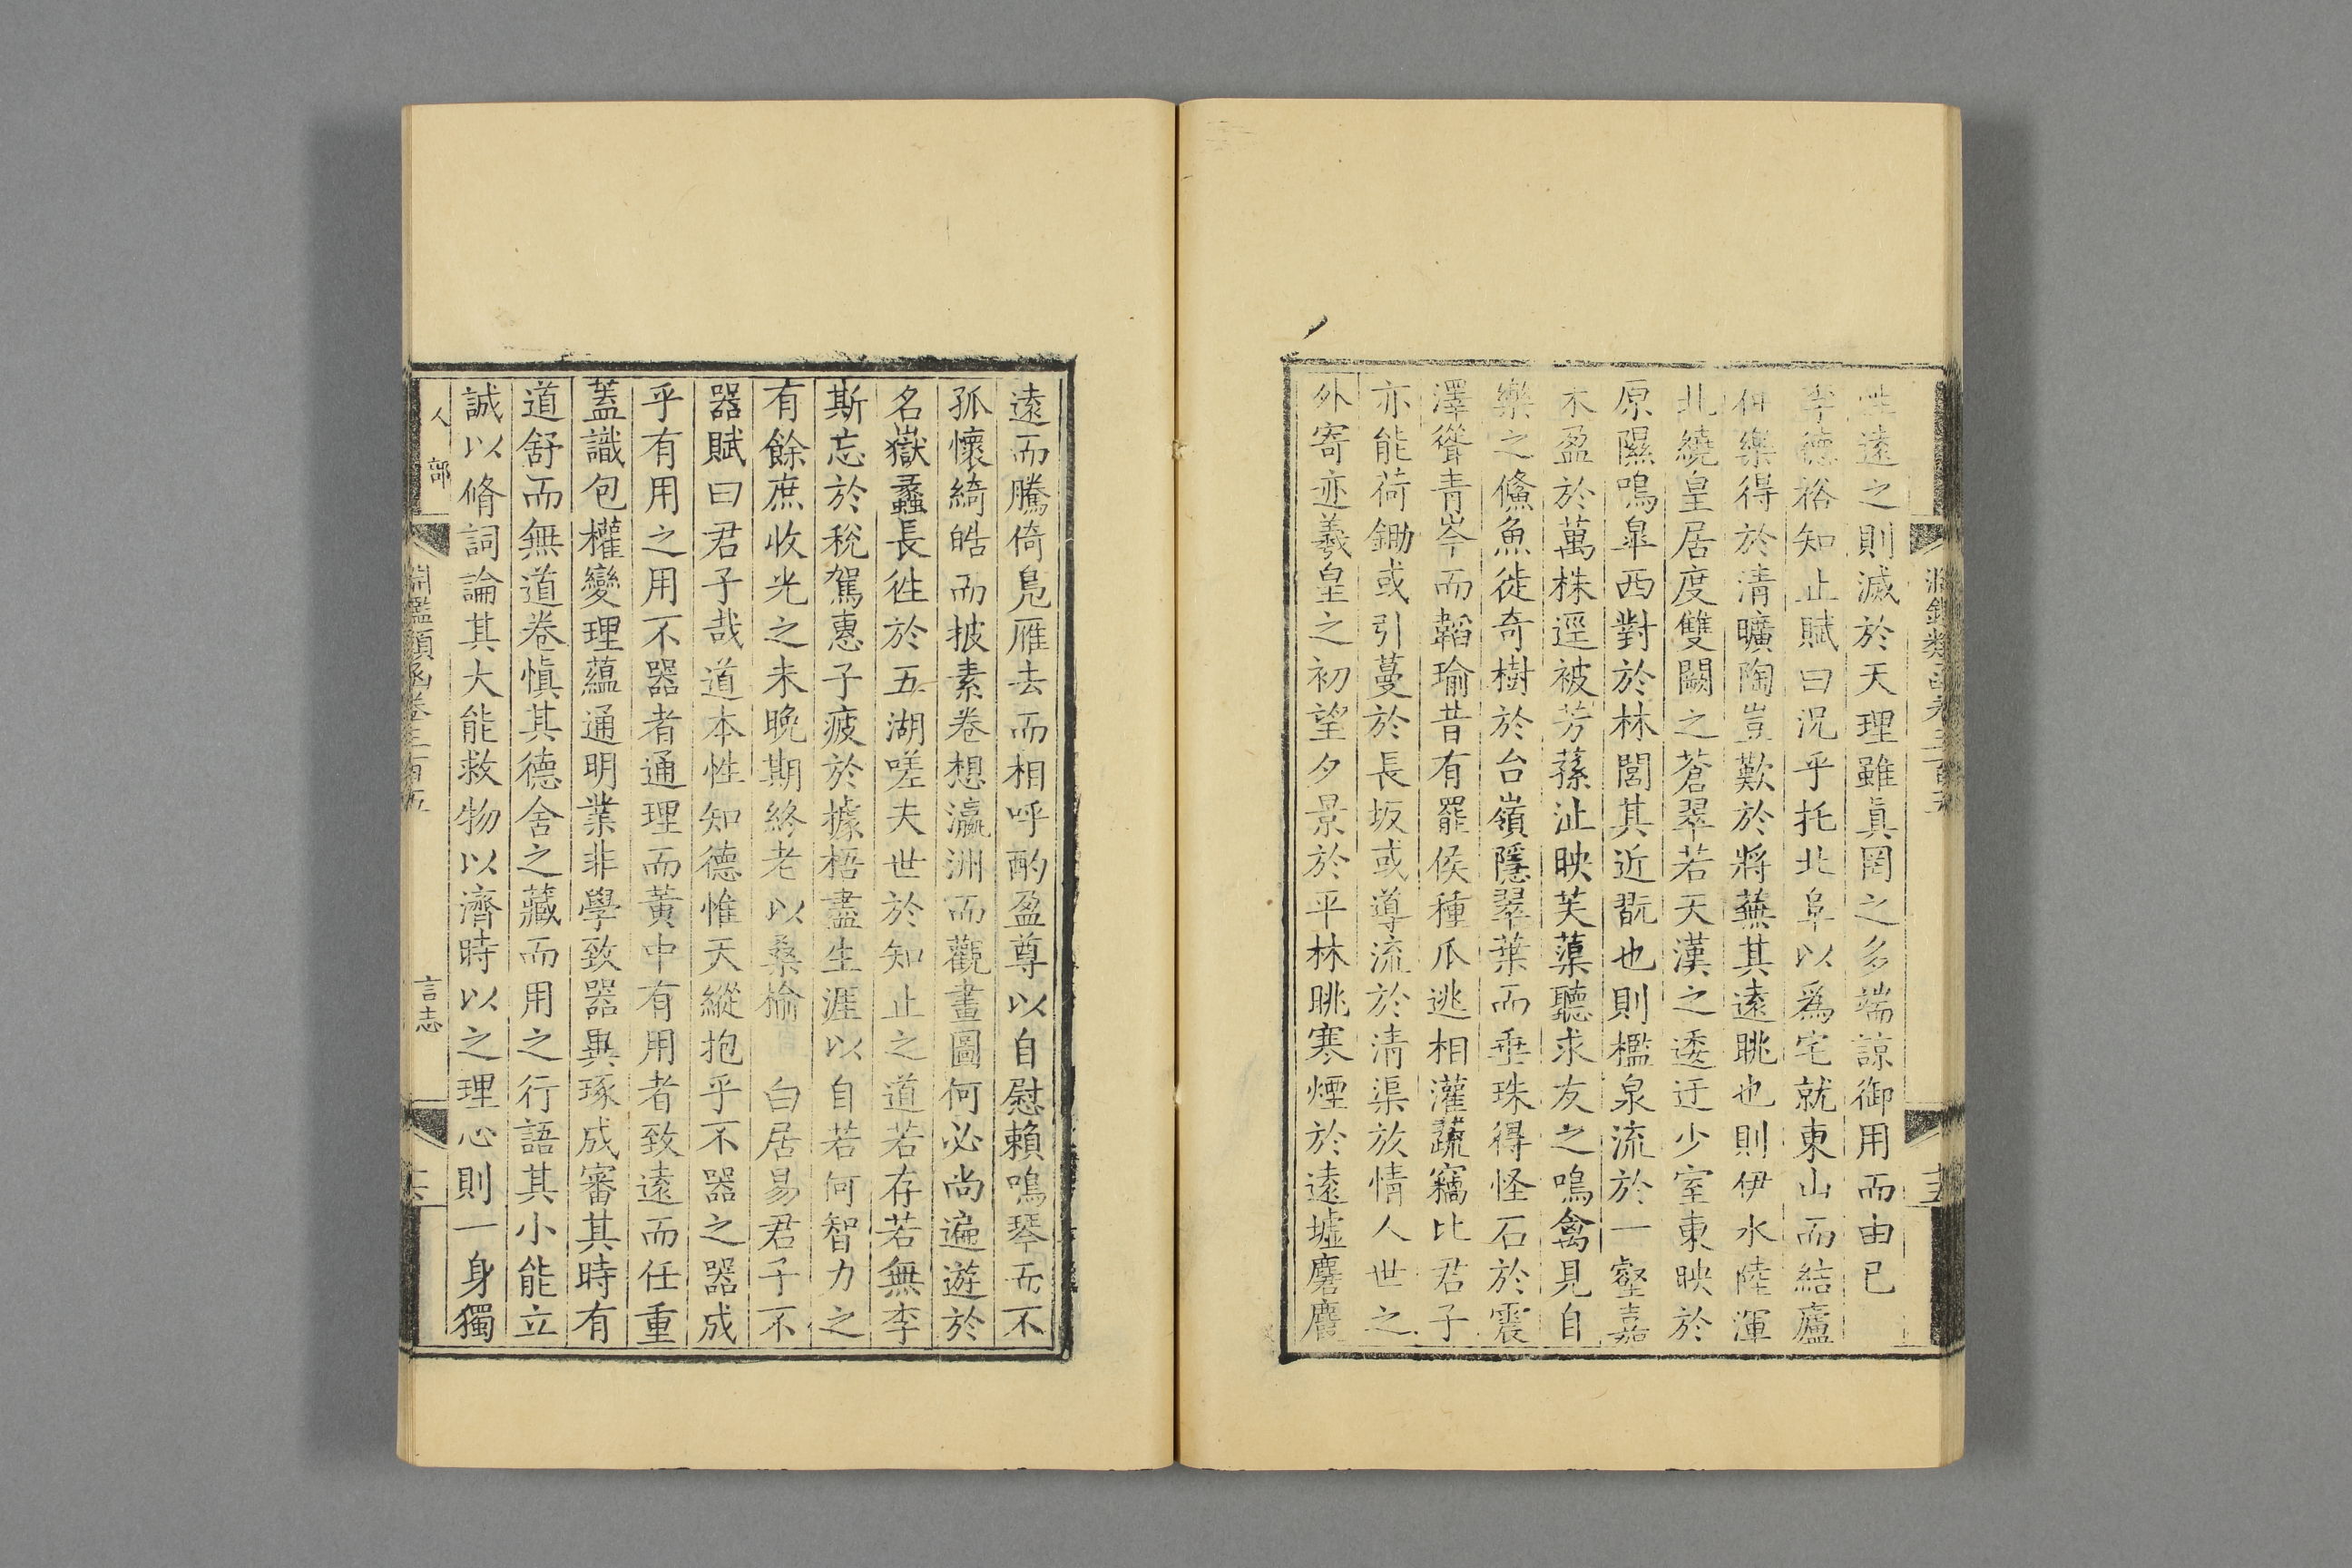 性遠之則滅於天理雖眞罔之多端諒御用而由已
李德裕知止賦曰況乎托北阜以爲宅就東山而結廬
仲樂得於清曠陶豈歎於將蕪其遠眺也則伊水陸渾
北繞皇居度雙闕之蒼翠若天漢之逶迂少室東映於
原隰鳴皐西對於林閭其近翫也則檻泉流於一壑嘉
木盈於萬株逕被芳蓀沚映芙蕖聽求友之鳴禽見自
樂之鯈魚徙奇樹於台嶺隱翠葉而垂珠得怪石於震
澤聳青岑而韜瑜昔有罷侯種瓜逃相灌蔬竊比君子
亦能荷鋤或引蔓於長坂或導流於清渠放情人世之
外寄迹羲皇之初望夕景於平林眺寒煙於遠墟麏麚
遠而騰倚鳧雁去而相呼酌盈尊以自慰賴鳴琴而不
孤懷綺皓而披素卷想瀛洲而觀畫圖何必尚遍遊於
名嶽蠡長徃於五湖嗟夫世於知止之道若存若無李
斯忘於稅駕惠子疲於據梧盡生涯以自若何智力之
有餘庶收光之未晚期終老以桑榆 白居易君子不
器賦曰君子哉道本性知德惟天縱抱乎不器之器成
乎有用之用不器者通理而黃中有用者致遠而任重
蓋識包權變理蘊通明業非學致器異琢成審其時有
道舒而無道卷愼其德舍之藏而用之行語其小能立
誠以脩詞論其大能救物以濟時以之理心則一身獨
人部 淵鑑類函卷三百五 言志